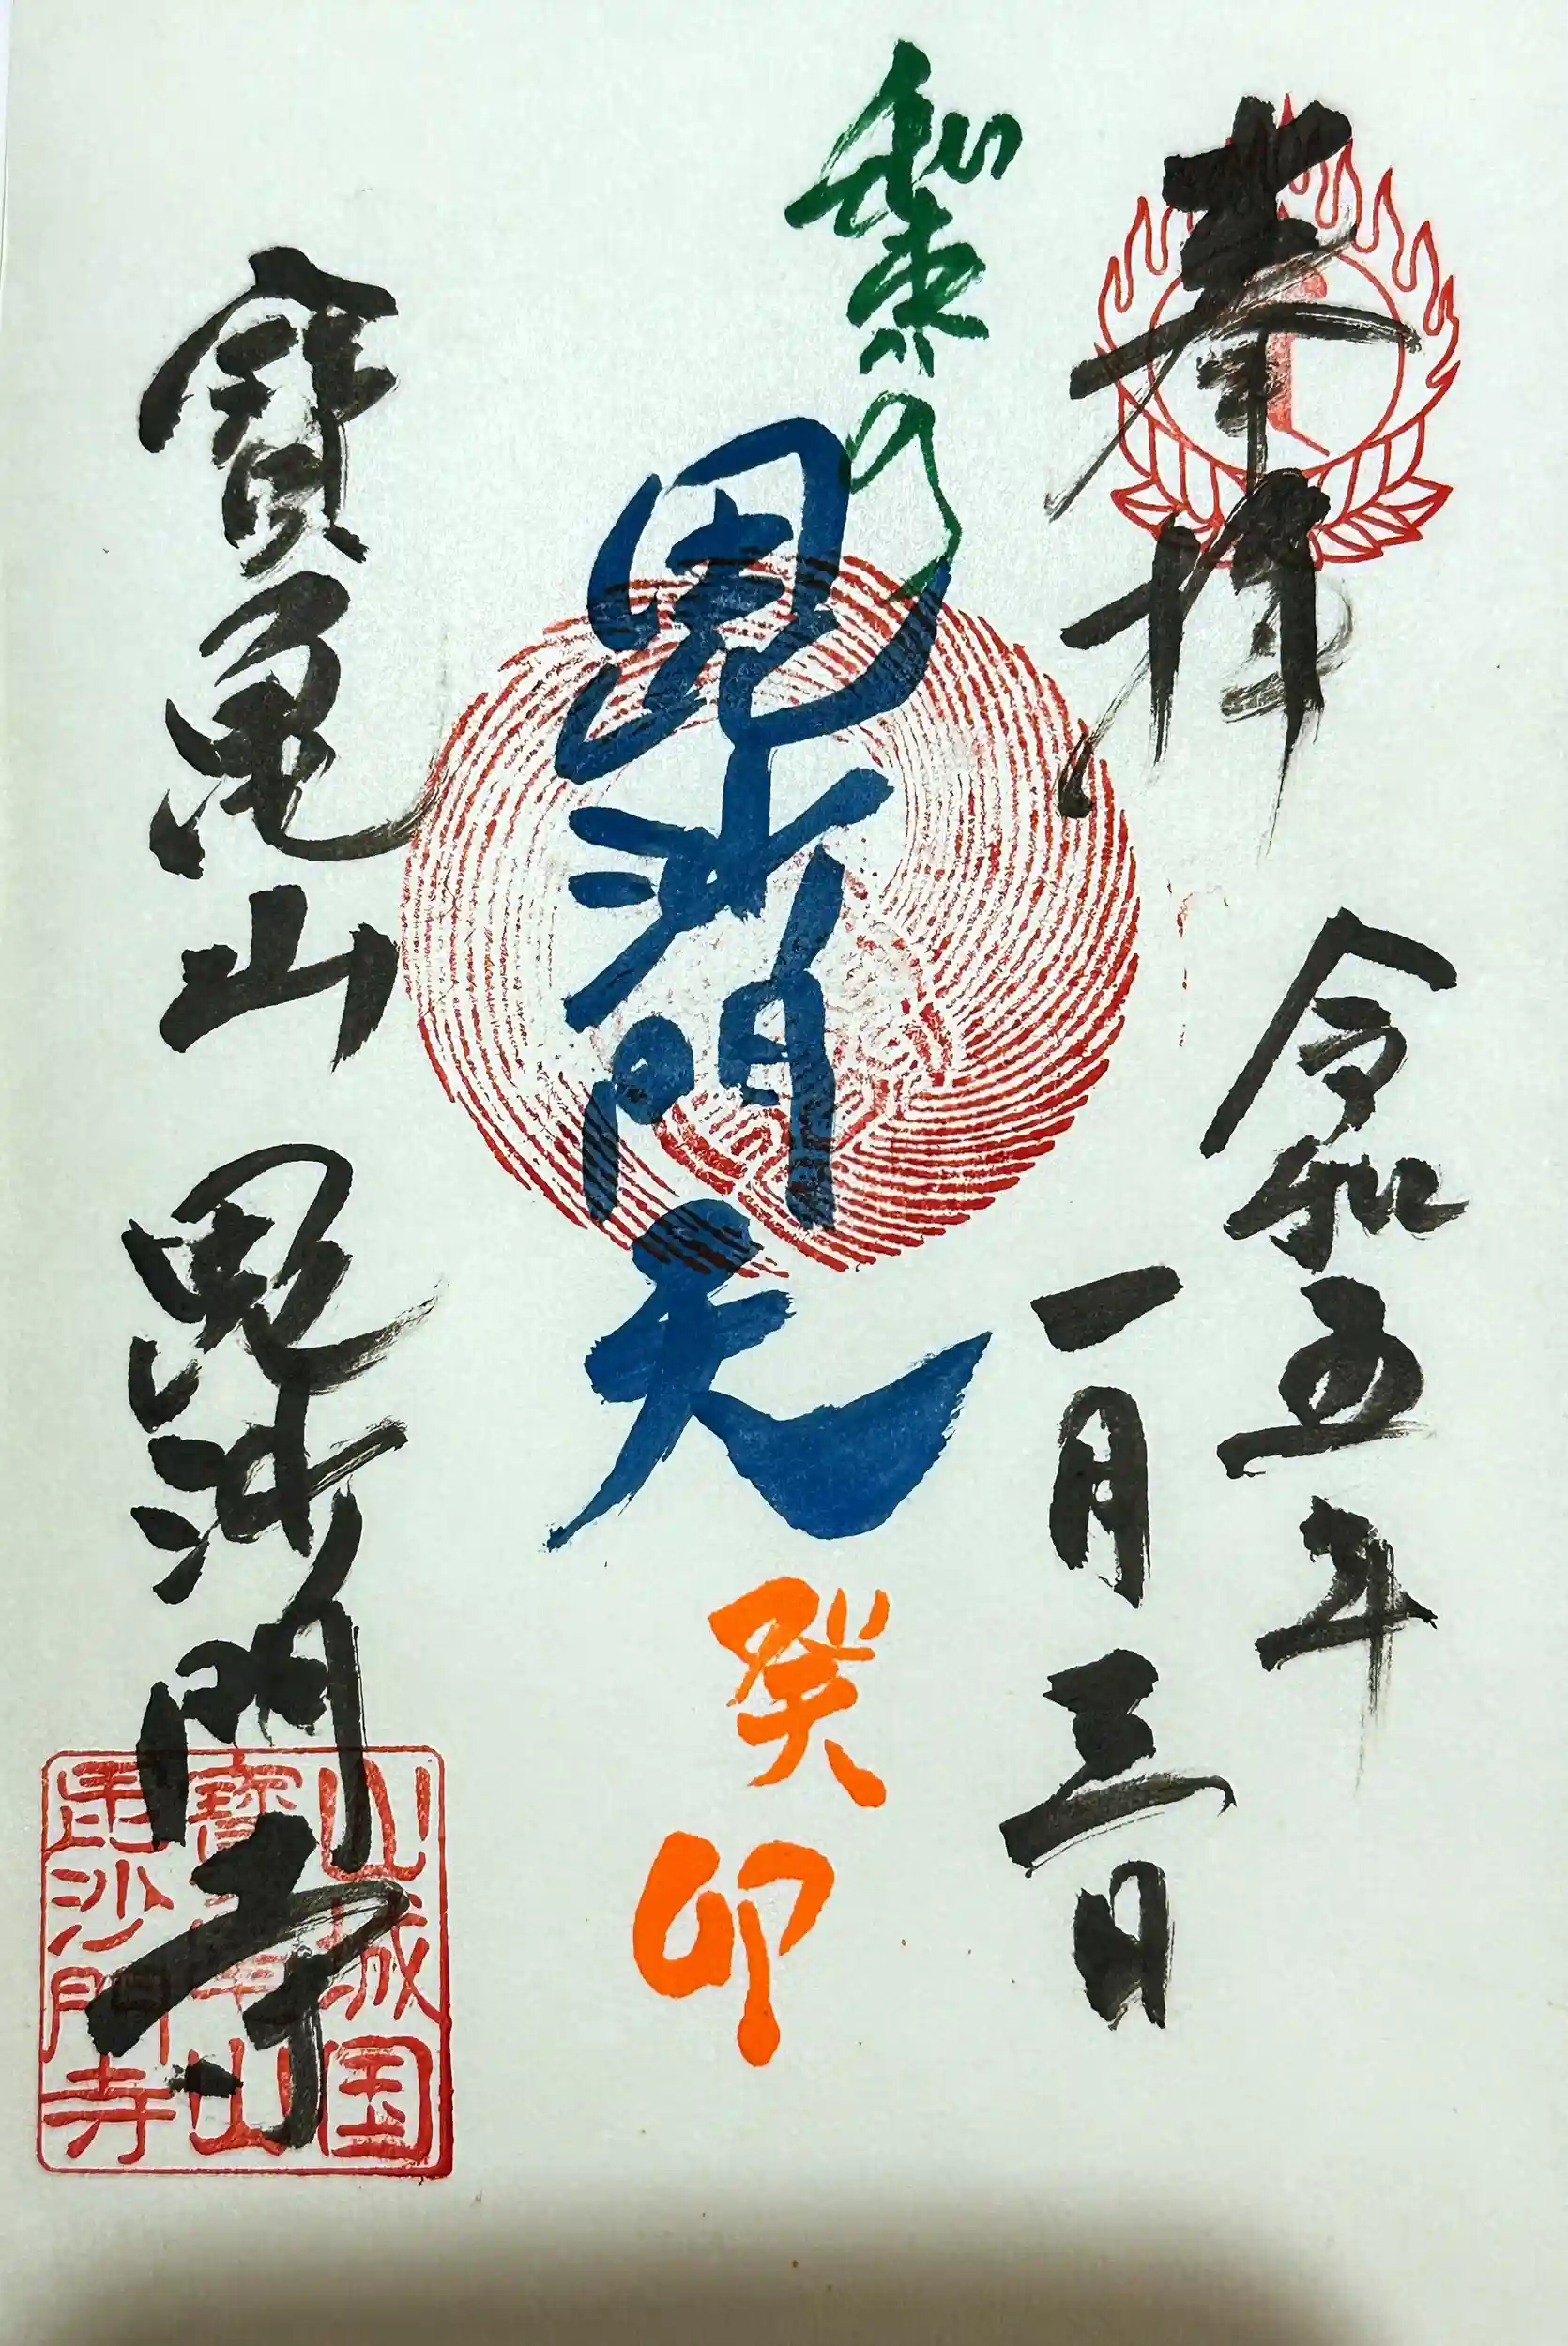 奉拝
令和五年
一月三日
毘沙門天
癸卯
寶亀山 毘沙門寺
山城国
寶亀山
毘沙門寺